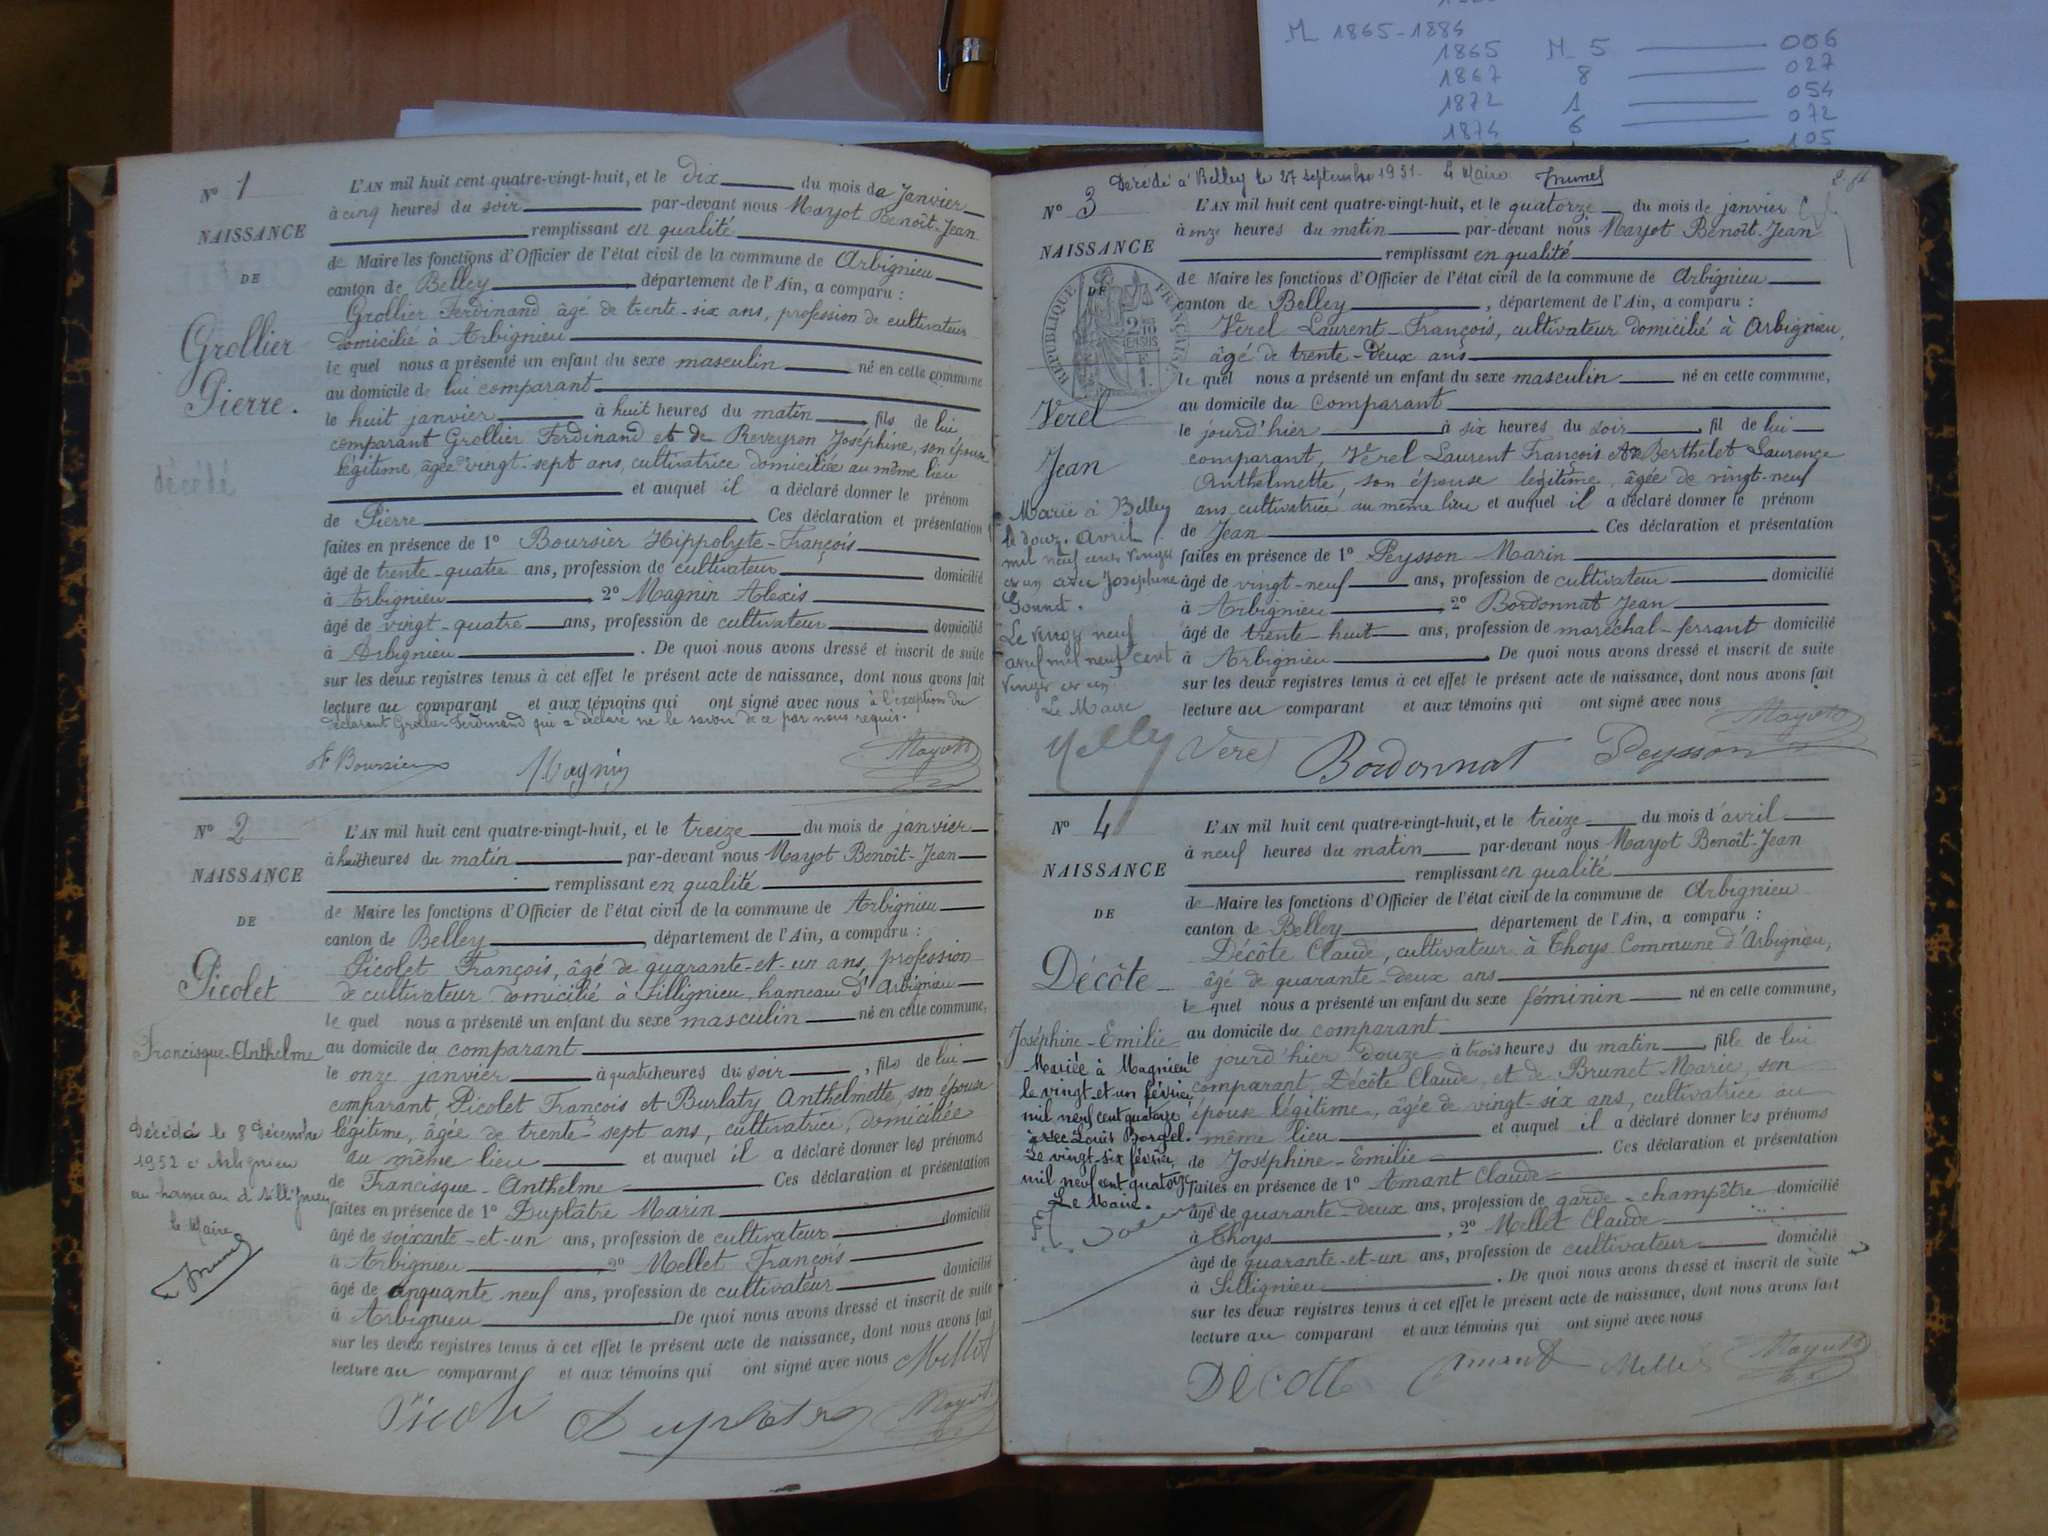 M 1865-1884
1865 M 5 006
1867 8 027
1872 1 054
1874 6 072
105
N° 1
NAISSANCE
DE
Grollier
Pierre.
décédé
L'AN mil huit cent quatre-vingt-huit, et le dix du mois de Janvier
à cinq heures du soir par-devant nous Mayot Benoît-Jean
remplissant en qualité
de Maire les fonctions d'Officier de l'état civil de la commune de Arbignieu
canton de Belley, département de l'Ain, a comparu :
Grollier Ferdinand âgé de trente-six ans, profession de cultivateur
domicilié à Arbignieu
le quel nous a présenté un enfant du sexe masculin né en cette commune
au domicile de lui comparant
le huit janvier à huit heures du matin, fils de lui
comparant Grollier Ferdinand et de Reveyron Joséphine, son épouse
légitime, âgée vingt-sept ans, cultivatrice domiciliée au même lieu
et auquel il a déclaré donner le prénom
de Pierre. Ces déclaration et présentation
faites en présence de 1° Boursier Hippolyte-François
âgé de trente-quatre ans, profession de cultivateur domicilié
à Arbignieu, 2° Magnin Alexis
âgé de vingt-quatre ans, profession de cultivateur domicilié
à Arbignieu. De quoi nous avons dressé et inscrit de suite
sur les deux registres tenus à cet effet le présent acte de naissance, dont nous avons fait
lecture au comparant et aux témoins qui ont signé avec nous à l'exception du
déclarant Grollier Ferdinand qui a déclaré ne le savoir de ce par nous requis.
H Boursier Magnin Mayot
N° 2
NAISSANCE
DE
Picolet
Francisque-Anthelme
Décédé le 8 Décembre
1952 à Arbignieu
au hameau d Sillignieu
le Maire
Brunel
L'AN mil huit cent quatre-vingt-huit, et le treize du mois de janvier
à huit heures du matin par-devant nous Mayot Benoît-Jean
remplissant en qualité
de Maire les fonctions d'Officier de l'état civil de la commune de Arbignieu
canton de Belley, département de l'Ain, a comparu :
Picolet François, âgé de quarante-et-un ans, profession
de cultivateur domicilié à Sillignieu, hameau d'Arbignieu
le quel nous a présenté un enfant du sexe masculin né en cette commune,
au domicile du comparant
le onze janvier à quatre heures du soir, fils de lui
comparant, Picolet François et Burlaty Anthelmette, son épouse
légitime, âgée de trente-sept ans, cultivatrice, domiciliée
au même lieu et auquel il a déclaré donner les prénoms
de Francisque-Anthelme Ces déclaration et présentation
faites en présence de 1° Duplâtre Marin
âgé de soixante-et-un ans, profession de cultivateur domicilié
à Arbignieu 2° Mellet François
âgé de cinquante neuf ans, profession de cultivateur domicilié
à Arbignieu De quoi nous avons dressé et inscrit de suite
sur les deux registres tenus à cet effet le présent acte de naissance, dont nous avons fait
lecture au comparant et aux témoins qui ont signé avec nous Mellet
Picolet Duplatre Mayot
Décédé à Belley le 27 septembre 1951. Le Maire Brunel
N° 3
NAISSANCE
DE
RÉPUBLIQUE FRANÇAISE
Verel
Jean
Marié à Belley
le douze Avril
mil neuf cent vingt
et un avec Joséphine
Gonnet.
Le vingt neuf
avril mil neuf cent
vingt et un
Le Maire
L'AN mil huit cent quatre-vingt-huit, et le quatorze du mois de janvier
à onze heures du matin par-devant nous Mayot Benoît-Jean
remplissant en qualité
de Maire les fonctions d'Officier de l'état civil de la commune de Arbignieu
canton de Belley, département de l'Ain, a comparu :
Verel Laurent-François, cultivateur domicilié à Arbignieu,
âgé de trente-deux ans
le quel nous a présenté un enfant du sexe masculin né en cette commune,
au domicile du comparant
le jourd'hier à six heures du soir, fil de lui
comparant, Verel Laurent François et de Berthelet Laurence
Anthelmette, son épouse légitime, âgée de vingt-neuf
ans cultivatrice au même lieu et auquel il a déclaré donner le prénom
de Jean Ces déclaration et présentation
faites en présence de 1° Peysson Marin
âgé de vingt-neuf ans, profession de cultivateur domicilié
à Arbignieu, 2° Bordonnat Jean
âgé de trente-huit ans, profession de maréchal-ferrant domicilié
à Arbignieu. De quoi nous avons dressé et inscrit de suite
sur les deux registres tenus à cet effet le présent acte de naissance, dont nous avons fait
lecture au comparant et aux témoins qui ont signé avec nous
Verel Bordonnat Peysson Mayot
N° 4
NAISSANCE
DE
Décôte
Joséphine-Emilie
Mariée à Magnieu
le vingt-et-un février
mil neuf cent quatorze
avec Louis Borgel.
Le vingt-six février
mil neuf cent quatorze
Le Maire.
L'AN mil huit cent quatre-vingt-huit, et le treize du mois d'avril
à neuf heures du matin par-devant nous Mayot Benoît-Jean
remplissant en qualité
de Maire les fonctions d'Officier de l'état civil de la commune de Arbignieu
canton de Belley, département de l'Ain, a comparu :
Décôte Claude, cultivateur à Thoys Commune d'Arbignieu,
âgé de quarante-deux ans
le quel nous a présenté un enfant du sexe féminin né en cette commune,
au domicile du comparant
le jourd'hier douze à trois heures du matin, fille de lui
comparant, Décôte Claude, et de Brunet Marie, son
épouse légitime, âgée de vingt-six ans, cultivatrice au
même lieu et auquel il a déclaré donner les prénoms
de Joséphine-Emilie. Ces déclaration et présentation
faites en présence de 1° Amant Claude
âgé de quarante-deux ans, profession de garde-champêtre domicilié
à Thoys, 2° Mellet Claude
âgé de quarante-et-un ans, profession de cultivateur domicilié
à Sillignieu. De quoi nous avons dressé et inscrit de suite
sur les deux registres tenus à cet effet le présent acte de naissance, dont nous avons fait
lecture au comparant et aux témoins qui ont signé avec nous
Décôte Amant Mellet Mayot